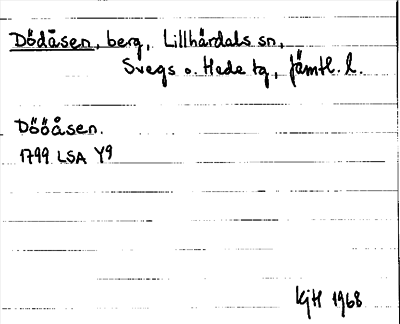 Dödåsen, berg, Lillhärdals sn,
Svegs o. Hede tg, Jämtl. l.
Dööåsen.
1799 LSA Y9
KjH 1968